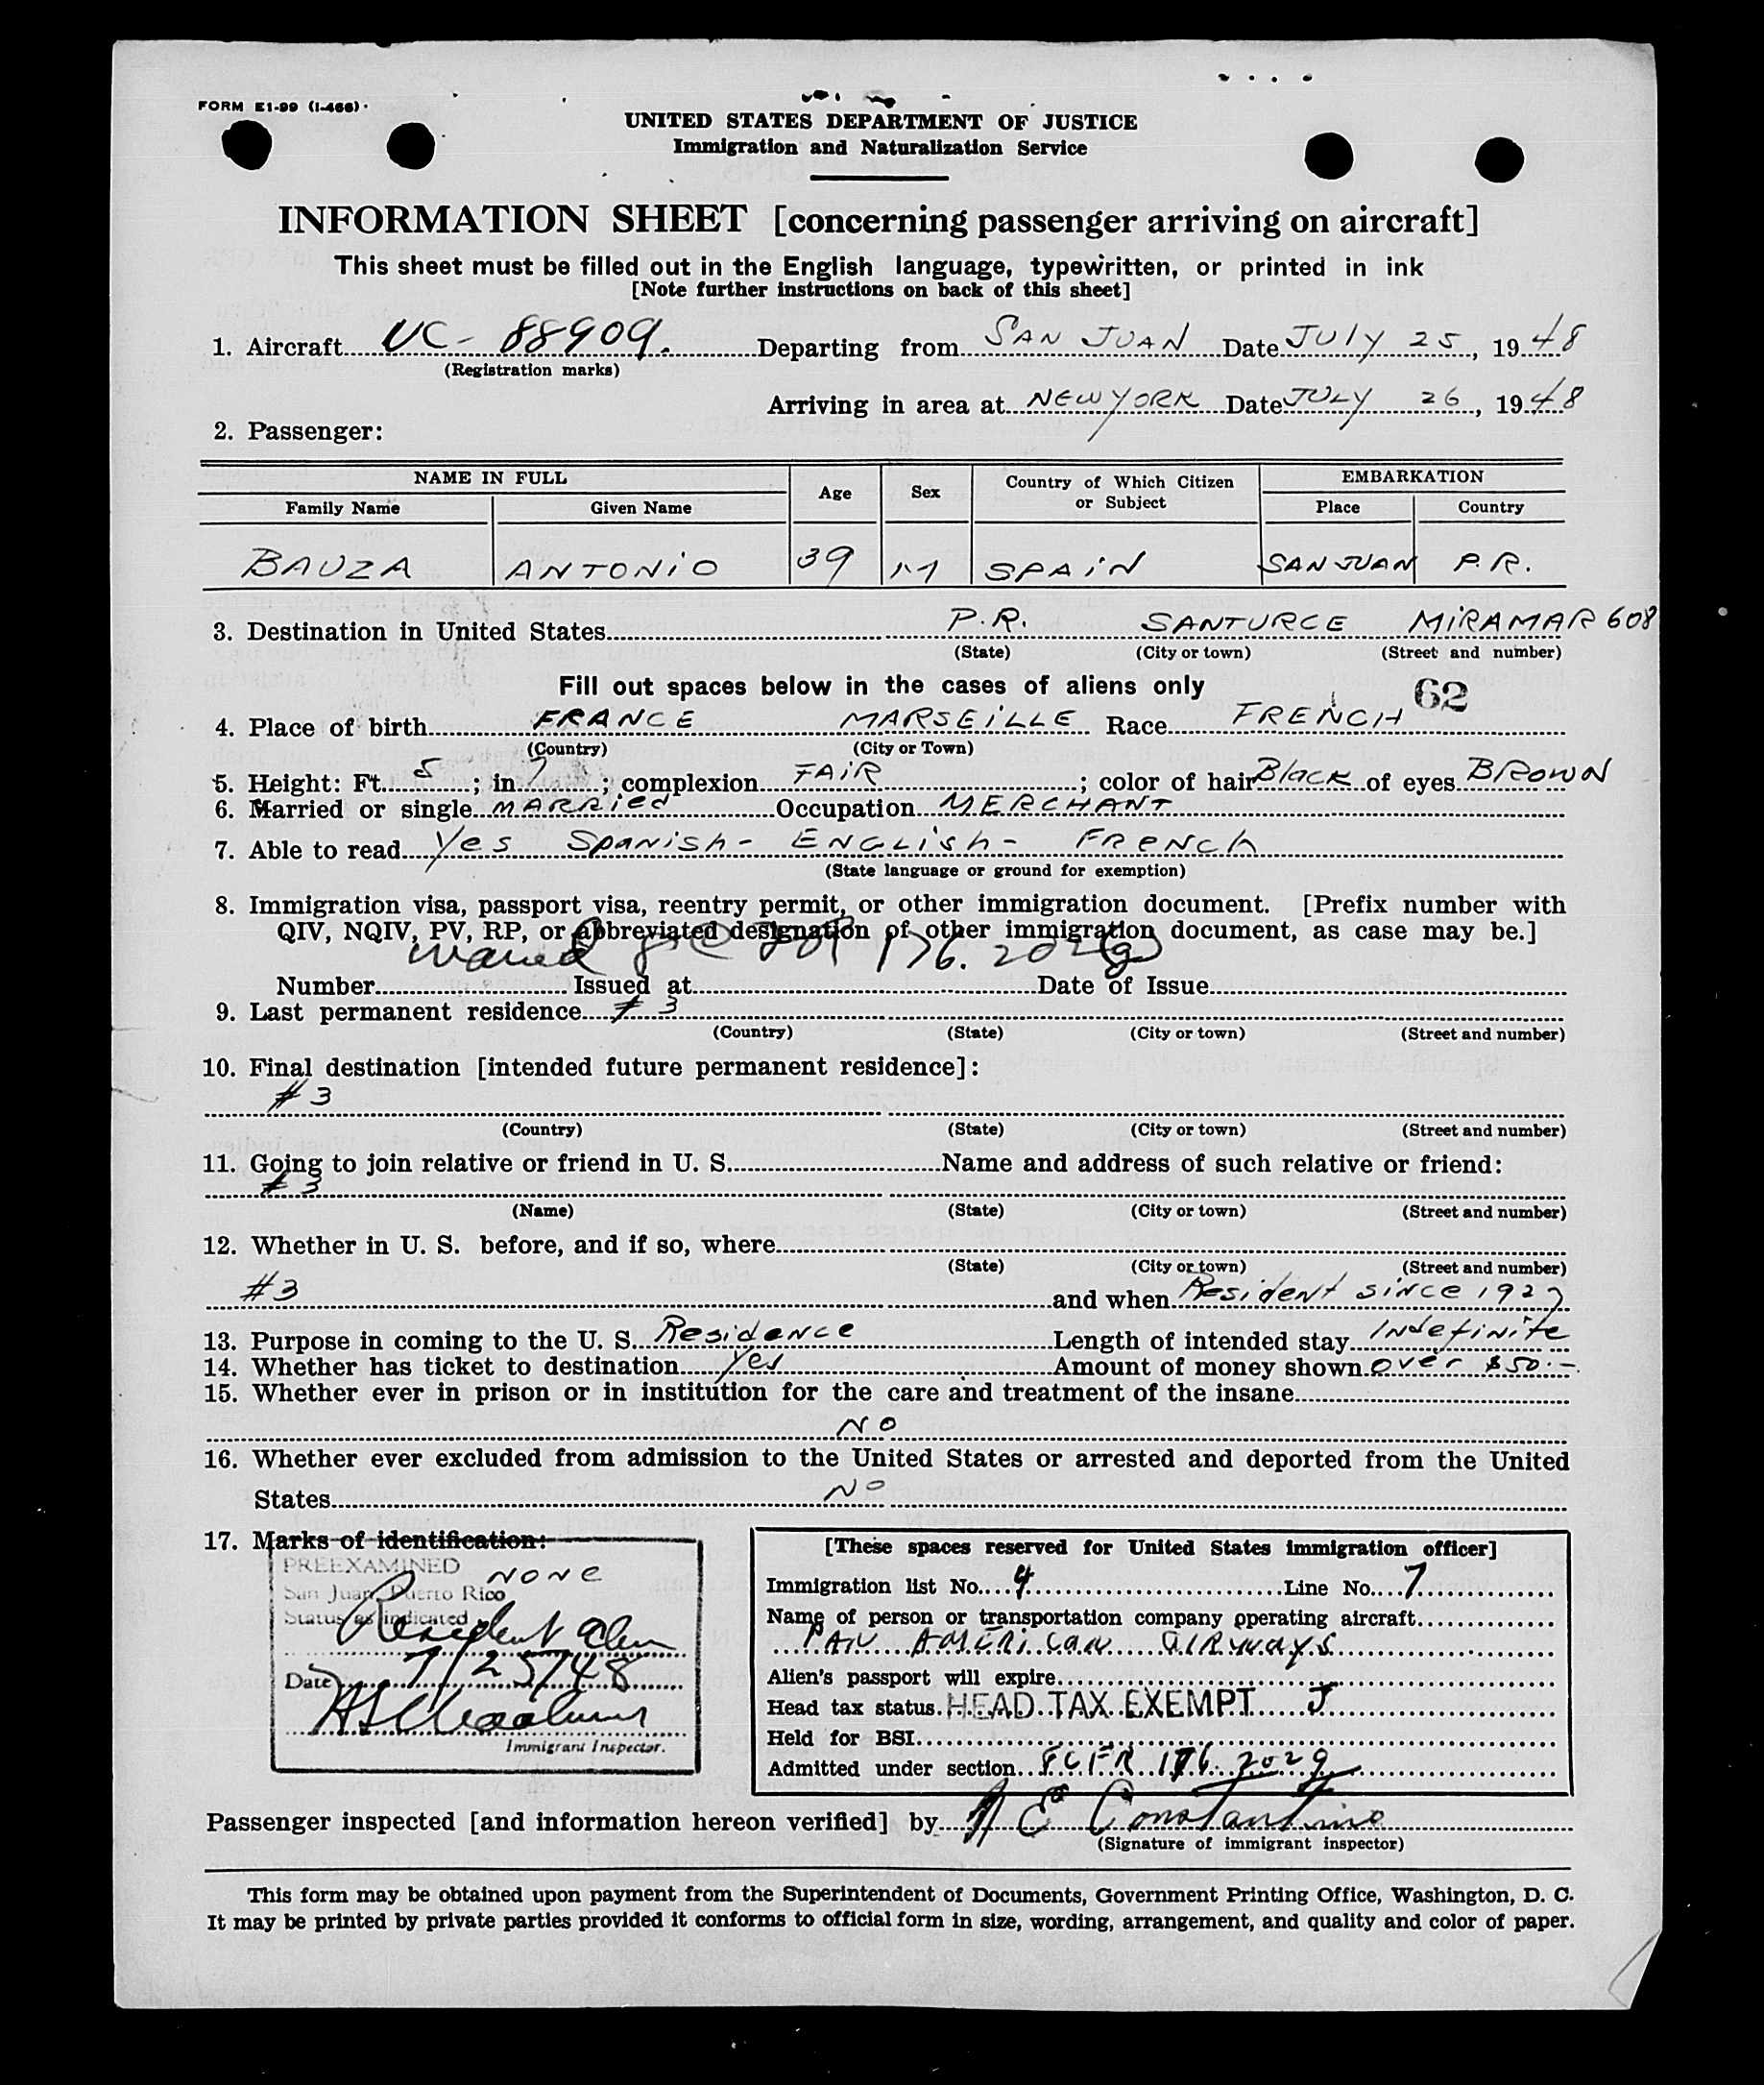 FORM E1-99 (I-466)
UNITED STATES DEPARTMENT OF JUSTICE
Immigration and Naturalization Service
INFORMATION SHEET [concerning passenger arriving on aircraft]
This sheet must be filled out in the English language, typewritten, or printed in ink
[Note further instructions on back of this sheet]
1. Aircraft UC-88909. Departing from SAN JUAN Date JULY 25, 1948
(Registration marks)
Arriving in area at NEW YORK Date JULY 26, 1948
2. Passenger:
NAME IN FULL Age Sex Country of Which Citizen or Subject EMBARKATION
Family Name Given Name Place Country
BAUZA ANTONIO 39 M SPAIN SAN JUAN P.R.
3. Destination in United States P.R. SANTURCE MIRAMAR 608
(State) (City or town) (Street and number)
Fill out spaces below in the cases of aliens only 62
4. Place of birth FRANCE MARSEILLE Race FRENCH
(Country) (City or Town)
5. Height: Ft. 5; in 7; complexion FAIR; color of hair Black of eyes BROWN
6. Married or single MARRIED Occupation MERCHANT
7. Able to read Yes Spanish- ENGLish- FRENCh
(State language or ground for exemption)
8. Immigration visa, passport visa, reentry permit, or other immigration document. [Prefix number with
QIV, NQIV, PV, RP, or abbreviated designation of other immigration document, as case may be.]
Waived 8 C F R 176.202(g)
Number Issued at Date of Issue
9. Last permanent residence # 3
(Country) (State) (City or town) (Street and number)
10. Final destination [intended future permanent residence]:
# 3
(Country) (State) (City or town) (Street and number)
11. Going to join relative or friend in U. S. Name and address of such relative or friend:
# 3
(Name) (State) (City or town) (Street and number)
12. Whether in U. S. before, and if so, where
(State) (City or town) (Street and number)
#3 and when Resident since 1927
13. Purpose in coming to the U. S. Residence Length of intended stay Indefinite
14. Whether has ticket to destination Yes Amount of money shown over $50.-
15. Whether ever in prison or in institution for the care and treatment of the insane
NO
16. Whether ever excluded from admission to the United States or arrested and deported from the United
States NO
17. Marks of identification:
PREEXAMINED NONE
San Juan, Puerto Rico
Status as indicated
Resident Alien
Date 7/25/48
Immigrant Inspector.
[These spaces reserved for United States immigration officer]
Immigration list No. 4 Line No. 7
Name of person or transportation company operating aircraft
PAN AMERICAN AIRWAYS
Alien's passport will expire
Head tax status HEAD TAX EXEMPT J
Held for BSI
Admitted under section 8 CFR 176.202g
Passenger inspected [and information hereon verified] by N E Constantino
(Signature of immigrant inspector)
This form may be obtained upon payment from the Superintendent of Documents, Government Printing Office, Washington, D. C.
It may be printed by private parties provided it conforms to official form in size, wording, arrangement, and quality and color of paper.